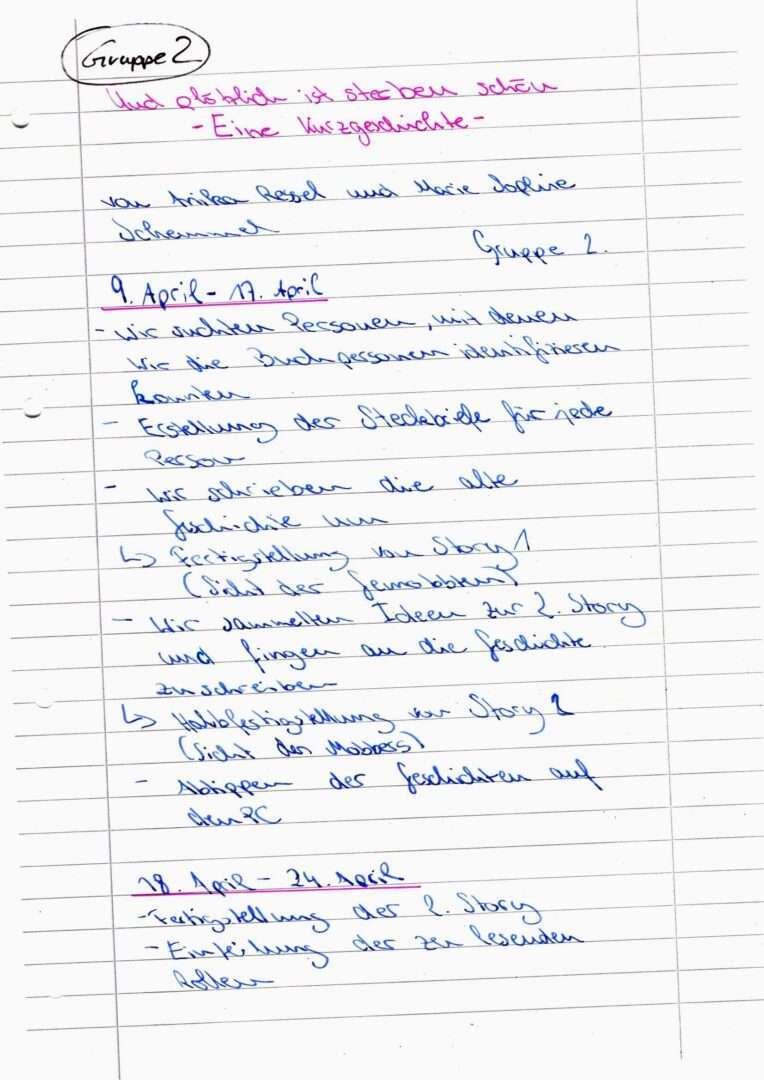 Gruppe 2
Und plötzlich ist sterben schön
- Eine Kurzgeschichte -
von Anika Ressel und Marie Sophie
Schemmel
Gruppe 2.
9. April - 17. April
- Wir suchten Personen, mit denen
wir die Buchpersonen identifizieren
konnten
- Erstellung der Steckbriefe für jede
Person
- Wir schrieben die alte
Geschichte um
↳ Fertigstellung von Story 1
(Sicht der Gemobbten)
- Wir sammelten Ideen zur 2. Story
und fingen an die Geschichte
zu schreiben
↳ Halbfertigstellung von Story 2
(Sicht des Mobbers)
- Abtippen der Geschichten auf
den PC
18. April - 24. April
- Fertigstellung der 2. Story
- Einteilung der zu lesenden
Rollen